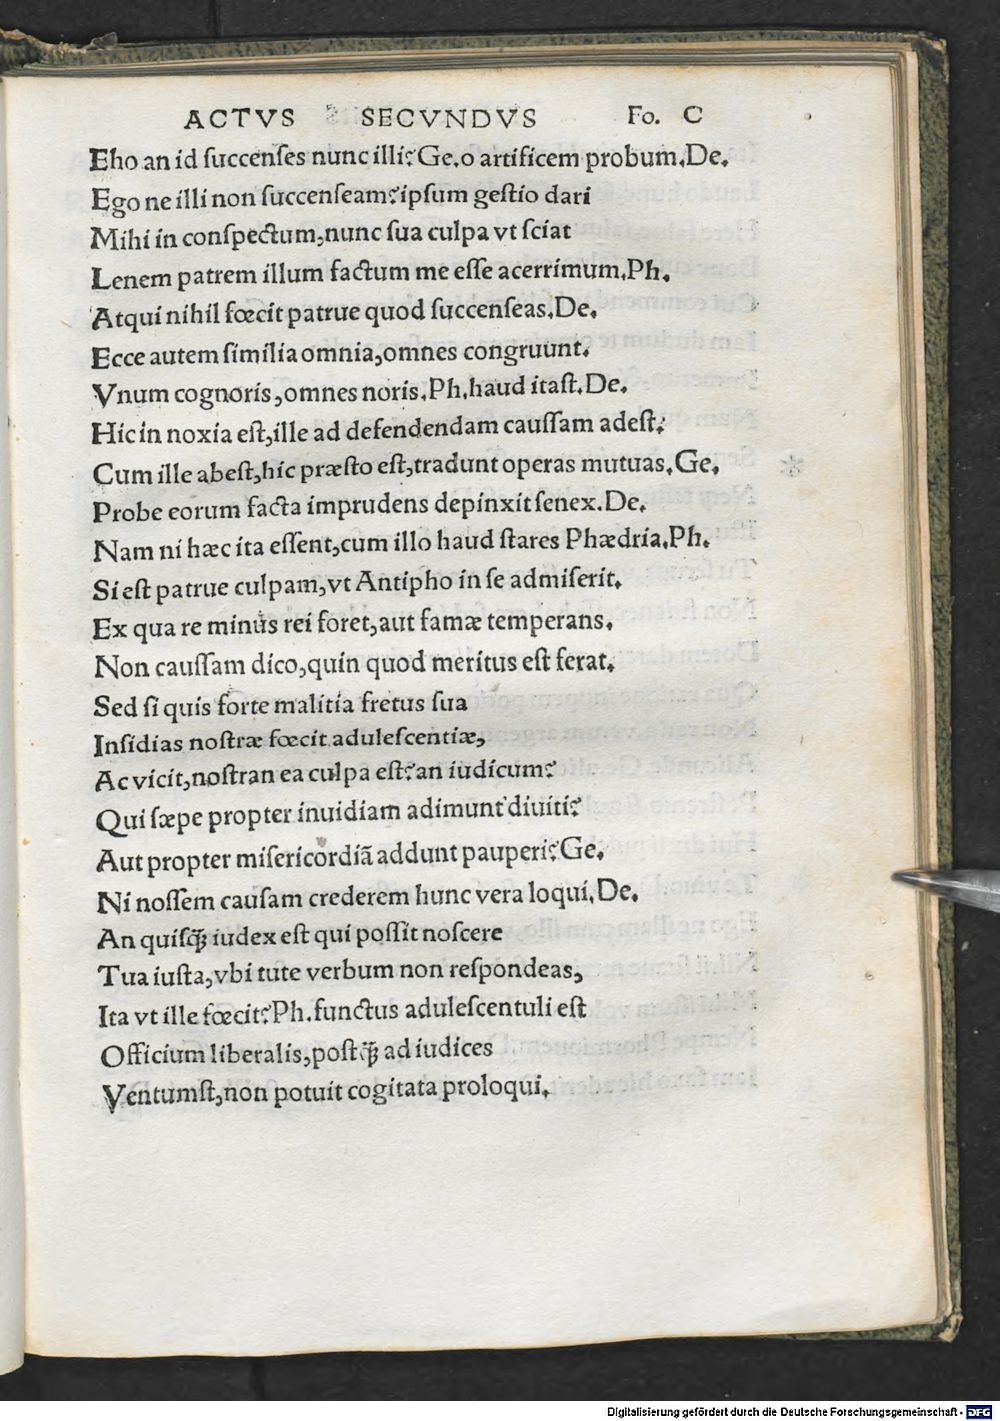 ACTVS SECVNDVS Fo. C
Eho an id ſuccenſes nunc illi? Ge. o artificem probum. De.
Ego ne illi non ſuccenſeam? ipſum geſtio dari
Mihi in conſpectum, nunc ſua culpa vt ſciat
Lenem patrem illum factum me eſſe acerrimum. Ph.
Atqui nihil fœcit patrue quod ſuccenſeas. De.
Ecce autem ſimilia omnia, omnes congruunt.
Vnum cognoris, omnes noris. Ph. haud itaſt. De.
Hic in noxia eſt, ille ad defendendam cauſſam adeſt:
Cum ille abeſt, hic præſto eſt, tradunt operas mutuas. Ge.
Probe eorum facta imprudens depinxit ſenex. De.
Nam ni hæc ita eſſent, cum illo haud ſtares Phædria. Ph.
Si eſt patrue culpam, vt Antipho in ſe admiſerit.
Ex qua re minus rei foret, aut famæ temperans.
Non cauſſam dico, quin quod meritus eſt ferat.
Sed ſi quis forte malitia fretus ſua
Inſidias noſtræ fœcit aduleſcentiæ,
Ac vicit, noſtran ea culpa eſt? an iudicum?
Qui ſæpe propter inuidiam adimunt diuiti?
Aut propter miſericordiã addunt pauperi? Ge.
Ni noſſem cauſam crederem hunc vera loqui. De.
An quiſq̃; iudex eſt qui poſſit noſcere
Tua iuſta, vbi tute verbum non reſpondeas,
Ita vt ille fœcit? Ph. functus aduleſcentuli eſt
Officium liberalis, poſtq̃; ad iudices
Ventumſt, non potuit cogitata proloqui.
Digitalisierung gefördert durch die Deutsche Forschungsgemeinschaft - DFG